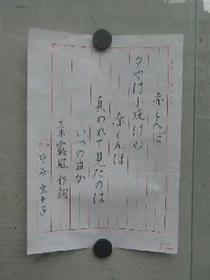 赤とんぼ
夕やけ小焼けの
赤とんぼ
負われて見たのは
いつの日か
三木露風 作詞